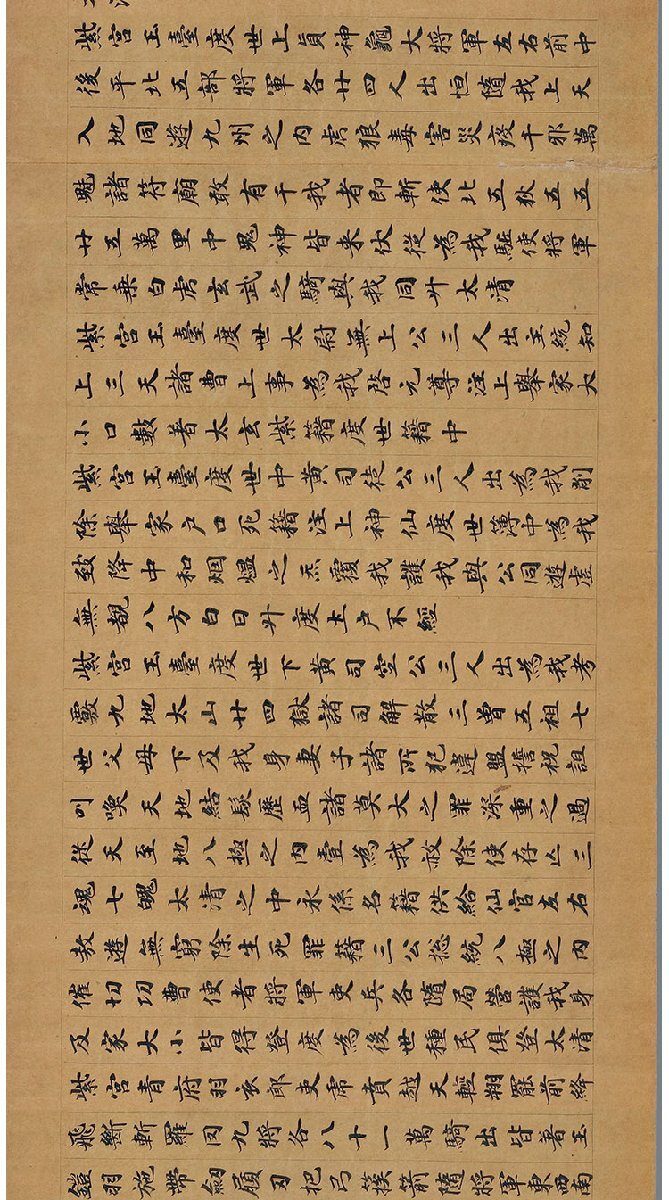 紫宮玉臺度世上真神龜大將軍左右前中
後平北五部將軍各廿四人出恒隨我上天
入地同遊九州之內虎狼毒害災癈千邪萬
魅諸符廟敢有干我者即斬使北五狄五五
廿五萬里中鬼神皆来伏從為我驅使將軍
常乗白虎玄武之騎與我同升太清
紫宮玉臺度世太尉無上公三人出主統知
上三天諸曹上事為我啓元尊注上舉家大
小口數著太玄紫籍度世籍中
紫宮玉臺度世中黃司徒公三人出為我削
除舉家户口死籍注上神仙度世簿中為我
致降中和烟煴之炁覆我護我與公同遊虛
無觀八方白日升度土户不經
紫宮玉臺度世下黃司空公三人出為我考
覈九地太山廿四獄諸司解散三曾五祖七
世父母下及我身妻子諸所犯違盟擔祝詛
叫喚天地結髮歷血諸莫大之罪深重之過
從天至地八極之內壹為我赦除使存亡三
魂七魄太清之中永係名籍供給仙官左右
敖遊無窮除生死罪籍三公揔統八極之內
催切功曹使者將軍吏兵各隨局營護我身
及家大小皆得登度為後世種民俱登太清
紫宮青府羽衣郎吏虎賁越天輕翔羆前絳
飛斷斬羅罔九將各八十一萬騎出皆著玉
鎧羽施帶劒履刃把弓挨箭隨將軍東西南